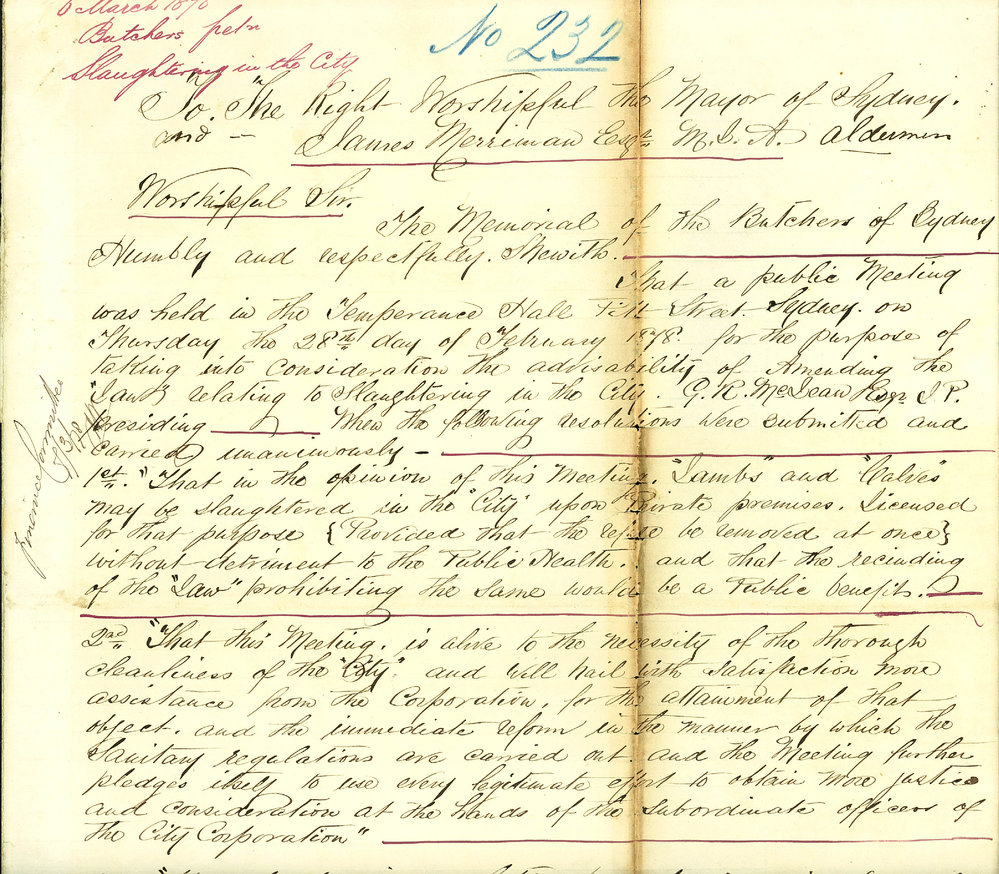 6 March 1878
Butchers petn
Slaughtering in the City
No 232
To. "The Right Worshipful the Mayor of Sydney.
and — James Merriman Esqre M.L.A. Aldermen
Worshipful Sir.
The Memorial of the Butchers of Sydney
Humbly and respectfully. Shewith.
That a public Meeting
was held in the Temperance Hall Pitt Street Sydney. on
Thursday the 28th day of February 1878. for the purpose of
taking into consideration the advisability of Amending the
"Law" relating to Slaughtering in the City. G. R. McLean Esqr J.P.
presiding When the following resolutions were submitted and
carried unanimously —
1st. "That in the opinion of this Meeting. "Lambs" and "Calves"
may be slaughtered in the "City" upon Private premises. Licensed
for that purpose {Provided that the refuse be removed at once}
without detriment to the Public Health. and that the recinding
of the "Law" prohibiting the same would be a Public benefit.
2nd "That this Meeting. is alive to the necessity of the thorough
cleanliness of the "City". and will hail with Satisfaction more
assistance from the Corporation. for the attainment of that
object. and the immediate reform in the manner by which the
Sanitary regulations are carried out and the Meeting further
pledges itself to use every legitimate effort to obtain more justice
and consideration at the hands of the Subordinate officers of
the City Corporation"
Finance Committee